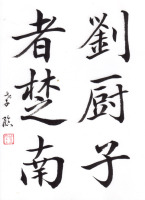 劉厨子
者楚南